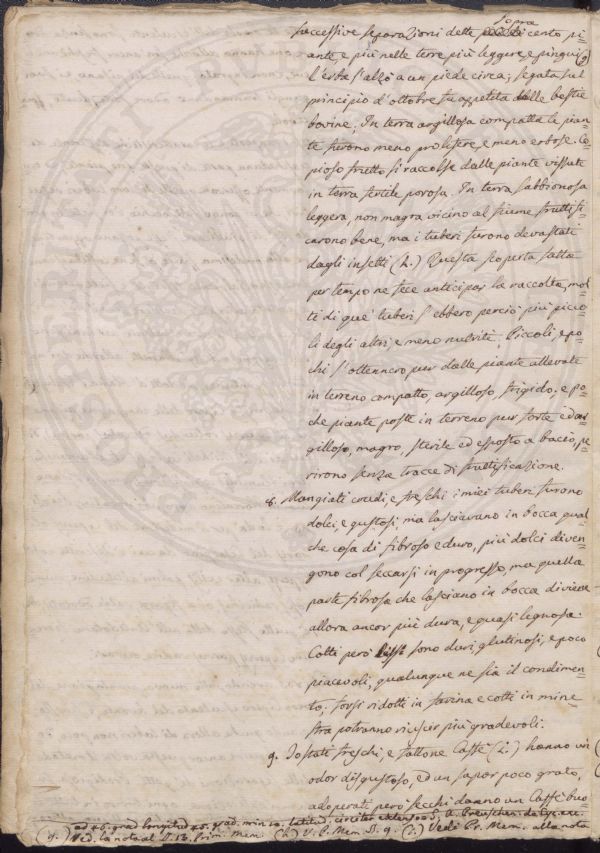 sopra
successive separazioni dette cento pi=
ante, e più nelle terre più leggere, e pingui (g)
l'erba s'alzò a un piede circa; segata sul
principio d'ottobre fu appetita dalle bestie
bovine; In terra argillosa compatta le pian=
te furono meno prolifere, e meno erbose. Co=
pioso frutto si raccolse dalle piante vissute
in terra fertile porosa. In terra sabbionosa
leggera, non magra vicino al fiume fruttifi=
carono bene, ma i tuberi furono devastati
dagli insetti (h.) Questa scoperta fatta
per tempo ne fece anticipar la raccolta, mol=
ti di que' tuberi s'ebbero perciò più picco=
li degli altri, e meno nutriti. Piccoli, e po=
chi s'ottennero pur dalle piante allevate
in terreno compatto, argilloso, frigido; e po=
che piante poste in terreno pur forte ed ar=
gilloso, magro, sterile ed esposto a bacìo, pe=
rirono senza tracce di fruttificazione.
8. Mangiati crudi, e freschi i miei tuberi furono
dolci, e gustosi, ma lasciavano in bocca qual=
che cosa di fibroso e duro, più dolci diven=
gono col seccarsi in progresso, ma quella
parte fibrosa che lasciano in bocca diviene
allora ancor più dura, e quasi legnosa.
Cotti però sono duri, glutinosi, e poco
piacevoli, qualunque ne sia il condimen=
to; forsi ridotti in farina e cotti in mine=
stra potranno riuscir più gradevoli.
9. Tostati freschi, e fattone Caffè (i.) hanno un
odor disgustoso, ed un sapor poco grato,
adoperati però secchi danno un Caffè buo=
ad 46. grad longitud 45. grad. min 10. latitud. circiter
(g.) Ved. la nota al §. 13. Prim. Mem. (h.) V. P. Mem. §. 9. (i.) Vedi Pr. Mem. alla nota